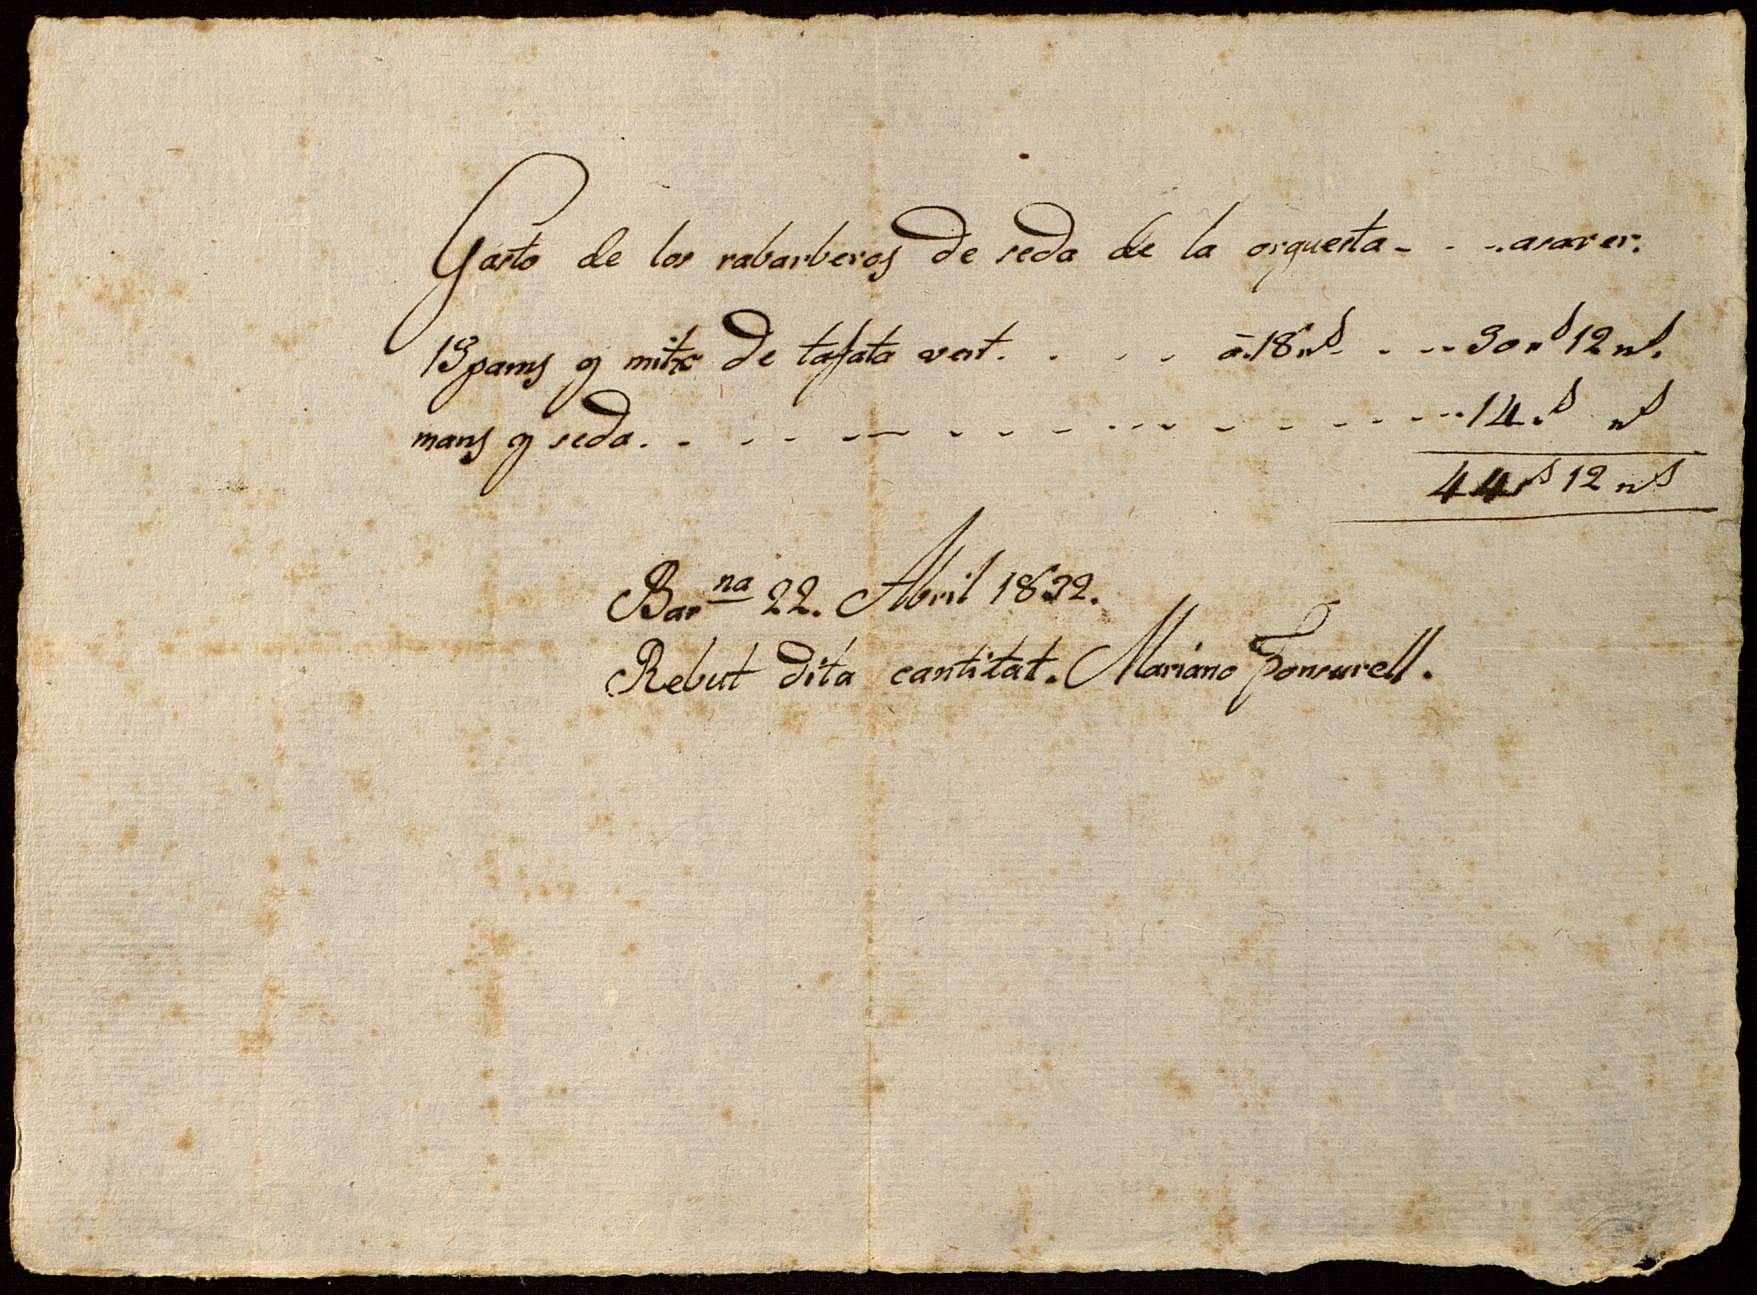 Gasto de los rabarberos de seda de la orquesta - - -. asaver.
13 pams y mitx de tafata vert. . . - - a 18 ns. - - - 30 rs 12 ns.
mans y seda. - - - - - - - - - - - - - - - 14 rs ns
44 rs 12 ns
Barna 22. Abril 1832.
Rebut dita cantitat. Mariano Fonsurell.